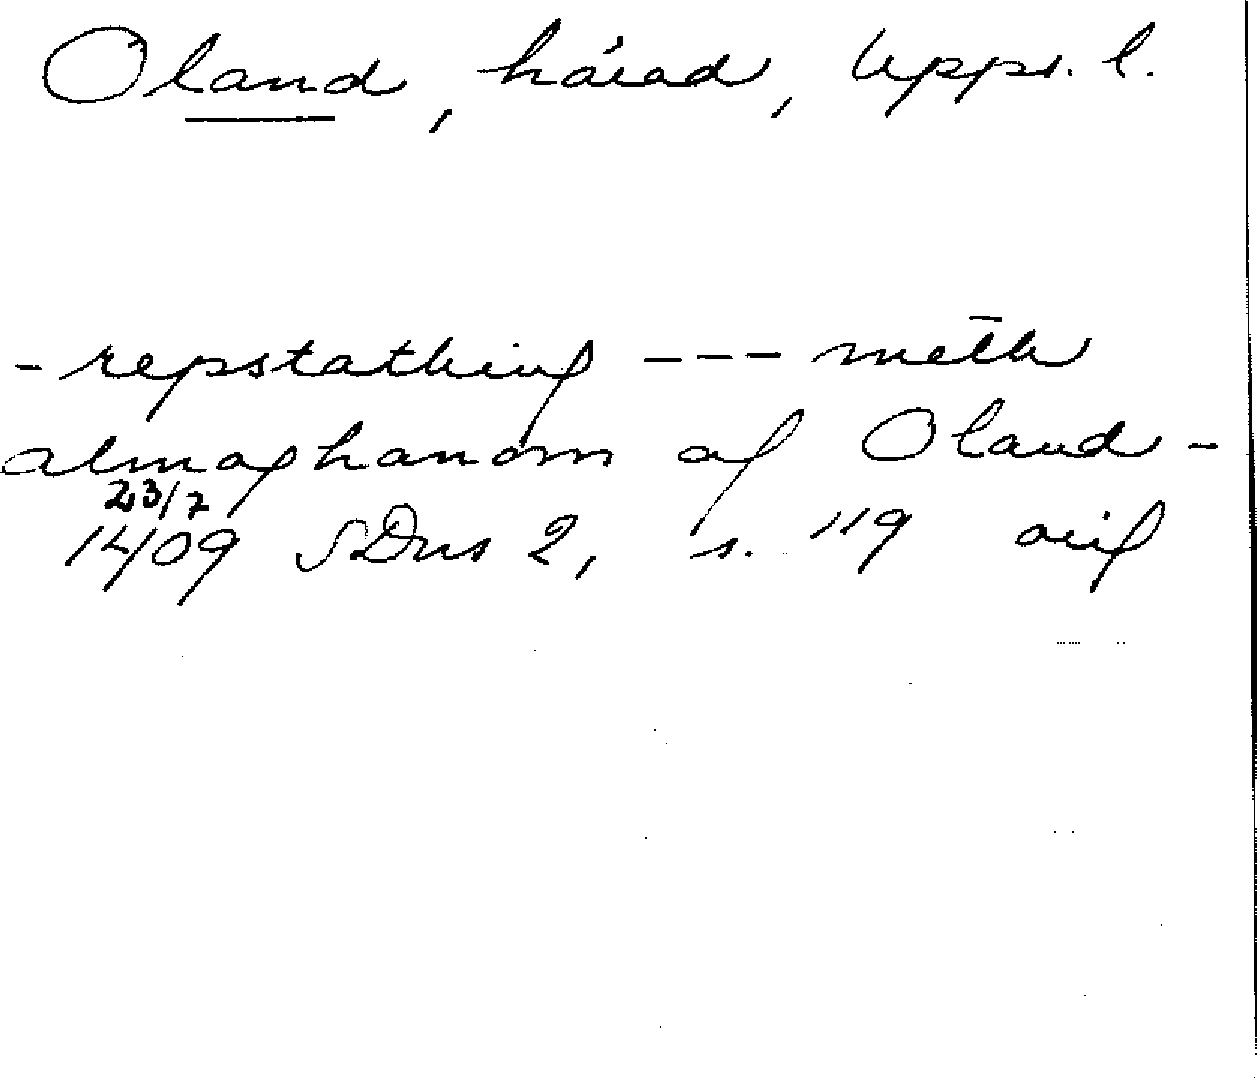 Oland, härad, Upps. l.
-repstathing --- mēth
almoghanom af Oland -
23/7
1409 SDns 2, s. 119 orig